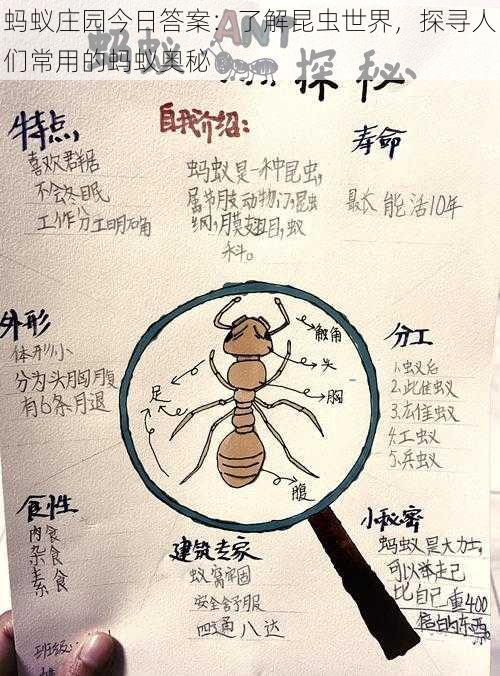 蚂蚁庄园今日答案：了解昆虫世界，探寻人
们常用的蚂蚁奥秘
蚂蚁 ANT 探秘
特点
喜欢群居
不会冬眠
工作分工明确
自我介绍：
蚂蚁是一种昆虫,
属节肢动物门,昆虫
纲,膜翅目,蚁
科。
寿命
最长能活10年
外形
体形小
分为头胸腹
有6条月退
触角
头
胸
足
腹
分工
1.蚁后
2.此隹蚁
3.右隹蚁
4.工蚁
5.兵蚁
食性
肉食
杂食
素食
建筑专家
蚁窝牢固
安全舒服
四通八达
小秘密
蚂蚁是大力士,
可以举走己
比自己重400
倍的东西。
班级: